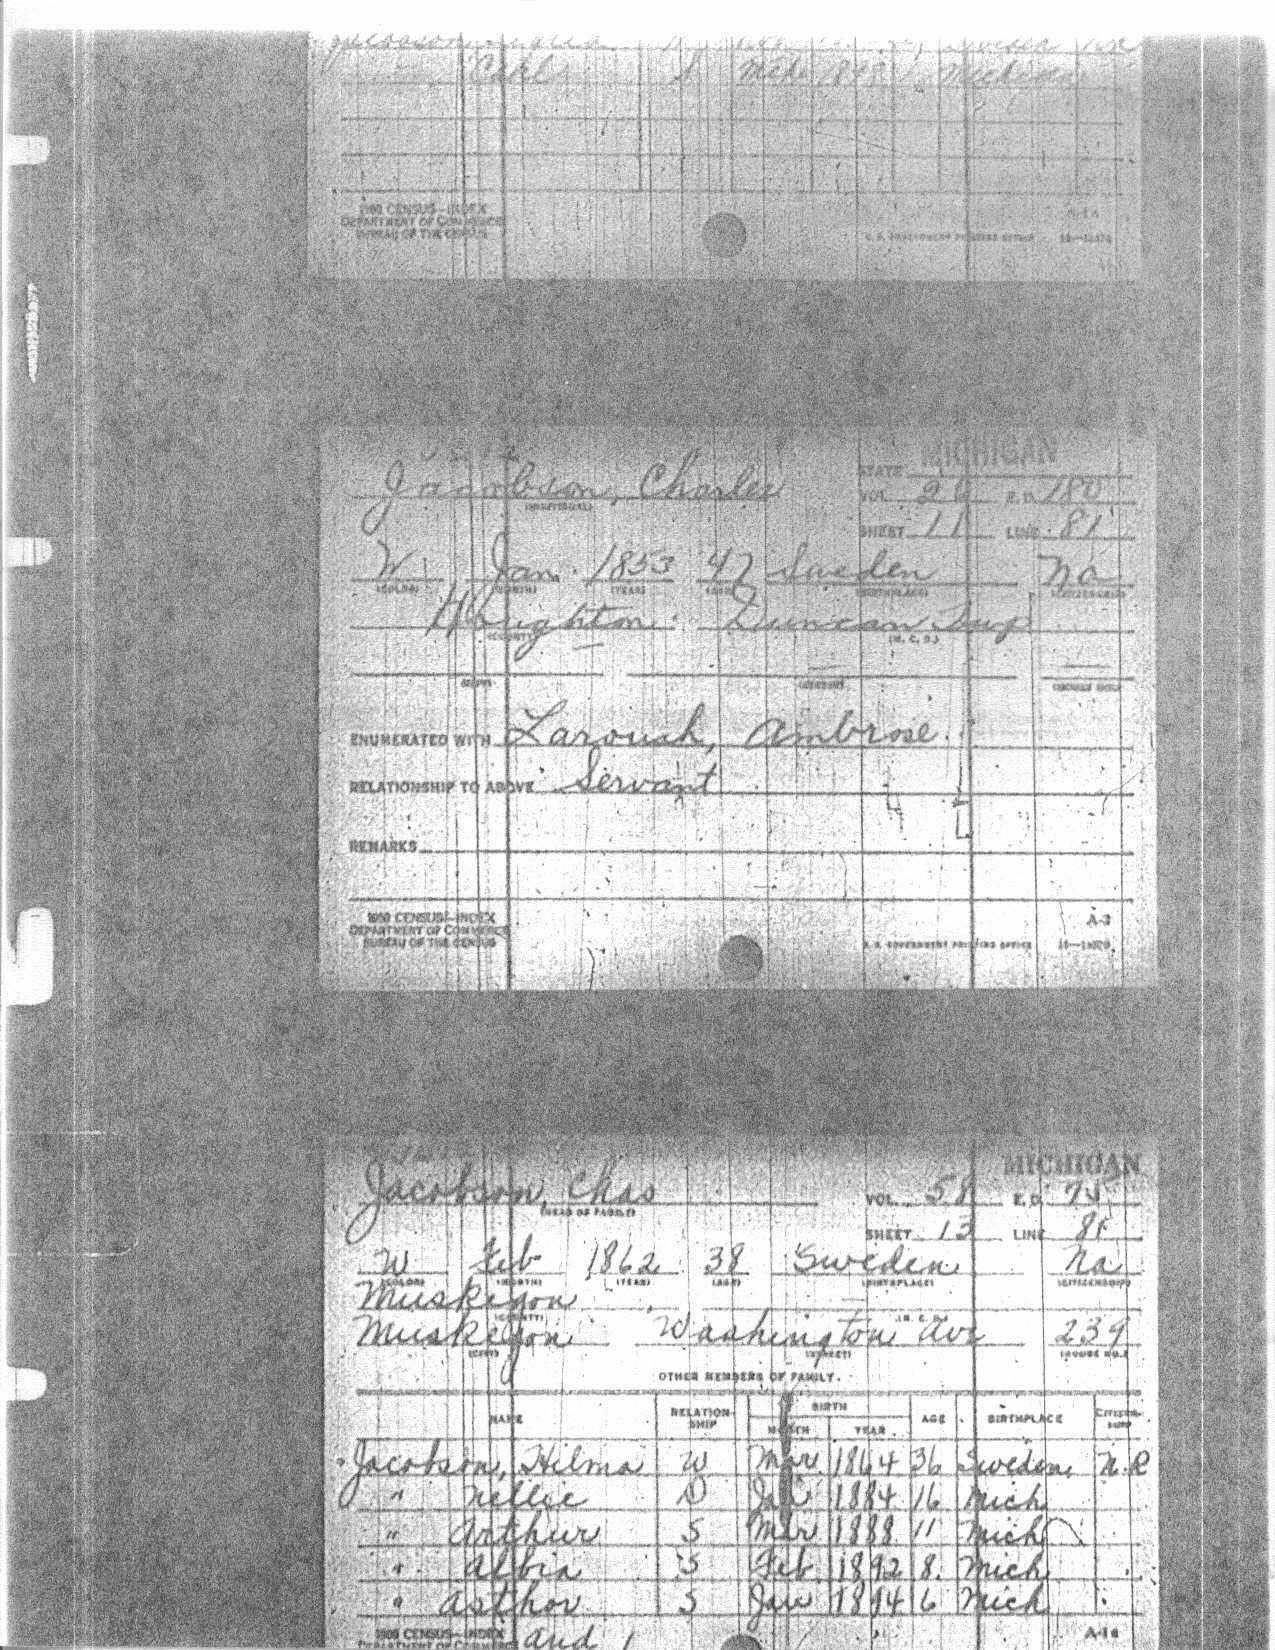 Jacobson
" Carl S Mch 1898 Michigan
1900 CENSUS—INDEX
DEPARTMENT OF COMMERCE
BUREAU OF THE CENSUS
A-1a
U. S. GOVERNMENT PRINTING OFFICE
MICHIGAN
STATE
Jacobson, Charlie VOL. 26 E.D. 180
(INDIVIDUAL)
SHEET 11 LINE 81
W Jan. 1853 47 Sweden Na
(COLOR) (MONTH) (YEAR) (AGE) (BIRTHPLACE) (CITIZENSHIP)
Houghton Duncan Twp
(COUNTY) (M. C. D.)
(CITY) (STREET) (HOUSE NO.)
ENUMERATED WITH Laroush, Ambrose
RELATIONSHIP TO ABOVE Servant
REMARKS
1900 CENSUS—INDEX
DEPARTMENT OF COMMERCE
BUREAU OF THE CENSUS
A-2
U. S. GOVERNMENT PRINTING OFFICE
MICHIGAN
Jacobson, Chas VOL. 58 E.D. 75
(HEAD OF FAMILY)
SHEET 13 LINE 81
W Feb 1862 38 Sweden Na
(COLOR) (MONTH) (YEAR) (AGE) (BIRTHPLACE) (CITIZENSHIP)
Muskegon
(COUNTY) (M. C. D.)
Muskegon Washington Ave 239
(CITY) (STREET) (HOUSE NO.)
OTHER MEMBERS OF FAMILY.
NAME RELATION-SHIP BIRTH MONTH YEAR AGE BIRTHPLACE CITIZEN-SHIP
Jacobson, Hilma W Mar 1864 36 Sweden N.R
" Nellie D 1884 16 Mich
" Arthur S Mar 1888 11 Mich
" Albin S Feb 1892 8 Mich
" Asthor S Jan 1894 6 Mich
1900 CENSUS—INDEX
DEPARTMENT OF COMMERCE
and 1
A-1a